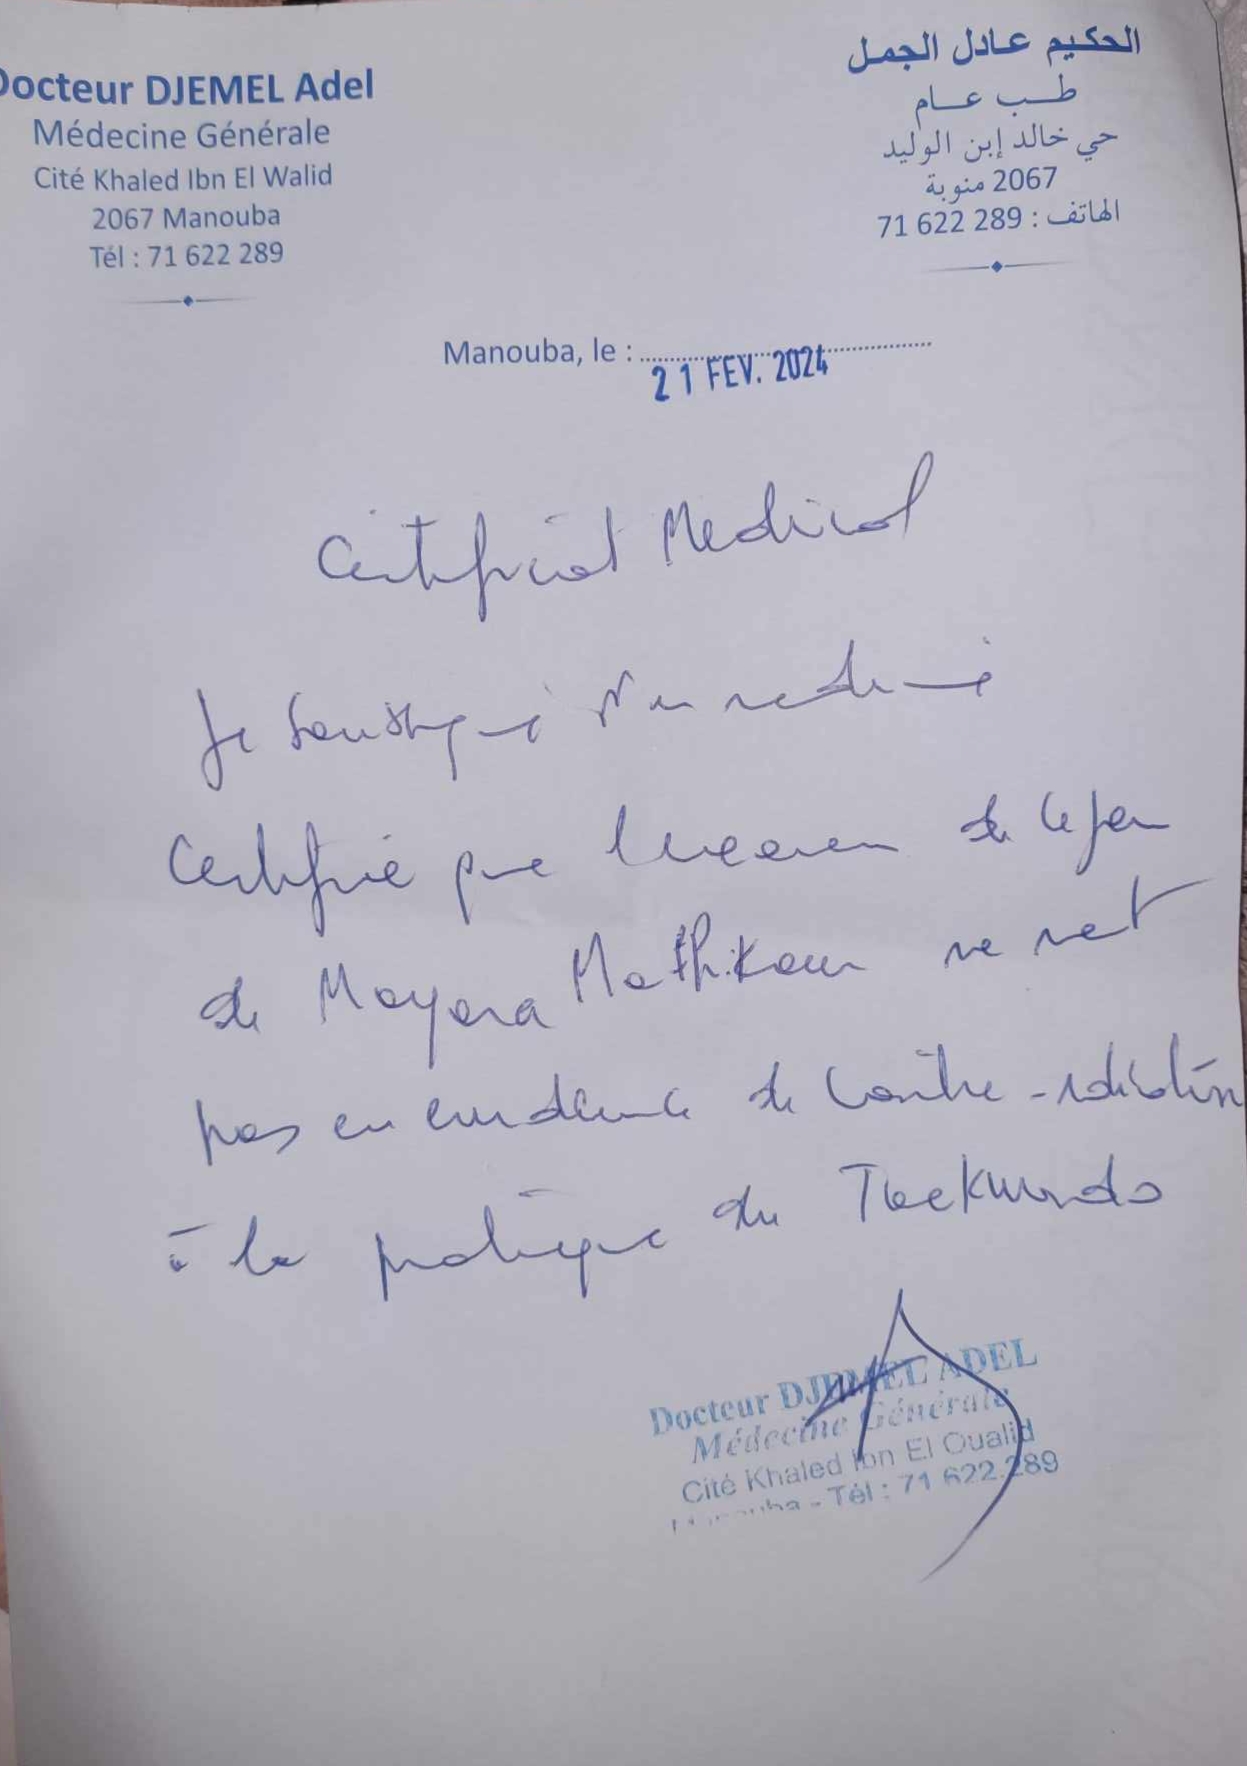 Docteur DJEMEL Adel
Médecine Générale
Cité Khaled Ibn El Walid
2067 Manouba
Tél : 71 622 289
الحكيم عادل الجمل
طب عام
حي خالد إبن الوليد
2067 منوبة
الهاتف : 289 622 71
Manouba, le :
21 FEV. 2024
Certificat Medical
Je soussigné
Certifie que l'examen de ce jour
de Mayara ne met
pas en evidence de contre-indication
à la pratique du Taekwondo
Docteur DJEMEL ADEL
Médecine Générale
Cité Khaled Ibn El Oualid
Manouba - Tél : 71 622.289